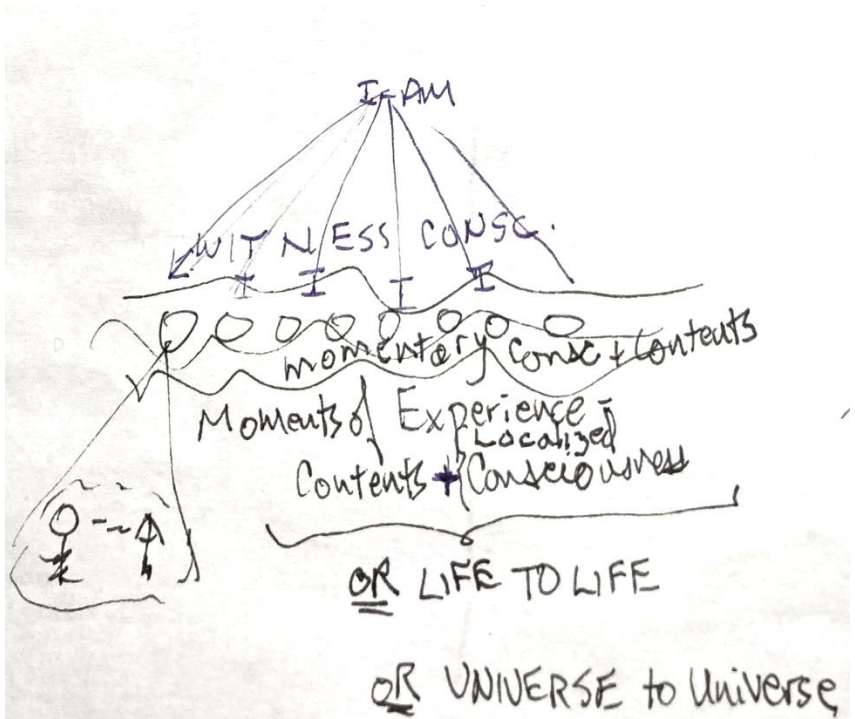 I-AM
WITNESS CONSC.
I I I I
momentary Consc + Contents
Moments of Experience =
Localized
Contents + Consciousness
OR LIFE TO LIFE
OR UNIVERSE to Universe